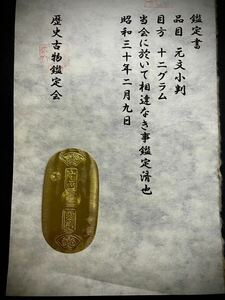 鑑定書
品目 元文小判
目方 十二グラム
当会に於いて相違なき事鑑定済也
昭和三十年二月九日
歴史古物鑑定会